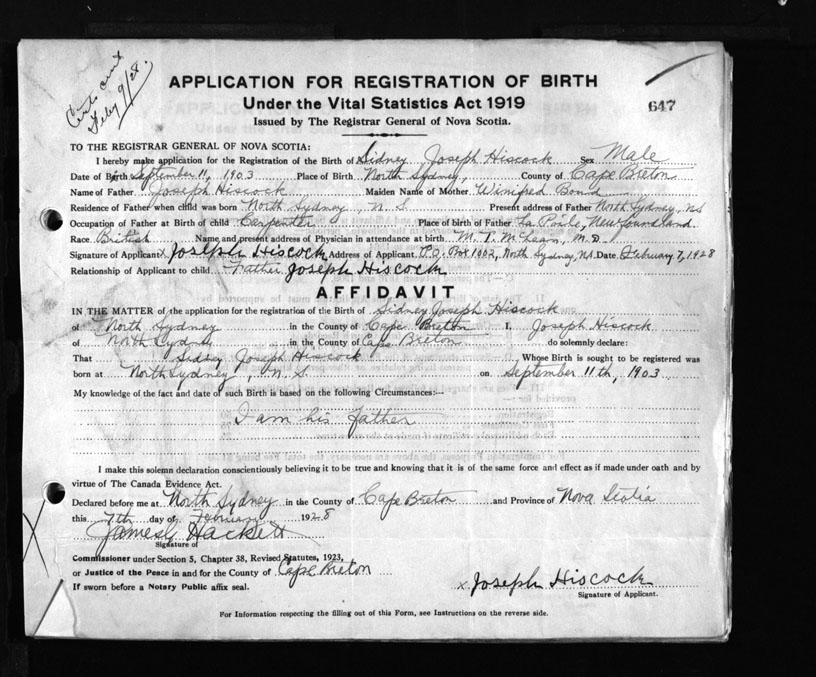 Feby 9/28.
APPLICATION FOR REGISTRATION OF BIRTH
Under the Vital Statistics Act 1919
647
Issued by The Registrar General of Nova Scotia.
TO THE REGISTRAR GENERAL OF NOVA SCOTIA:
I hereby make application for the Registration of the Birth of Sidney Joseph Hiscock Sex Male
Date of Birth September 11, 1903 Place of Birth North Sydney, County of Cape Breton
Name of Father Joseph Hiscock Maiden Name of Mother Winifred Bond
Residence of Father when child was born North Sydney, N.S. Present address of Father North Sydney, NS
Occupation of Father at Birth of child Carpenter Place of birth of Father La Poile, Newfoundland.
Race British Name and present address of Physician in attendance at birth M. T. McLean, M.D.
Signature of Applicant x Joseph Hiscock Address of Applicant P.O. Box 1002, North Sydney, N.S. Date February 7, 1928
Relationship of Applicant to child Father Joseph Hiscock
AFFIDAVIT
IN THE MATTER of the application for the registration of the Birth of Sidney Joseph Hiscock
of North Sydney in the County of Cape Breton I, Joseph Hiscock
of North Sydney in the County of Cape Breton do solemnly declare:
That Sidney Joseph Hiscock Whose Birth is sought to be registered was
born at North Sydney, N.S. on September 11th, 1903
My knowledge of the fact and date of such Birth is based on the following Circumstances:—
I am his father
I make this solemn declaration conscientiously believing it to be true and knowing that it is of the same force and effect as if made under oath and by
virtue of The Canada Evidence Act.
Declared before me at North Sydney in the County of Cape Breton and Province of Nova Scotia
this 7th day of February 1928
James Hackett
Signature of
Commissioner under Section 5, Chapter 38, Revised Statutes, 1923,
or Justice of the Peace in and for the County of Cape Breton
If sworn before a Notary Public affix seal.
x Joseph Hiscock
Signature of Applicant.
For Information respecting the filling out of this Form, see Instructions on the reverse side.